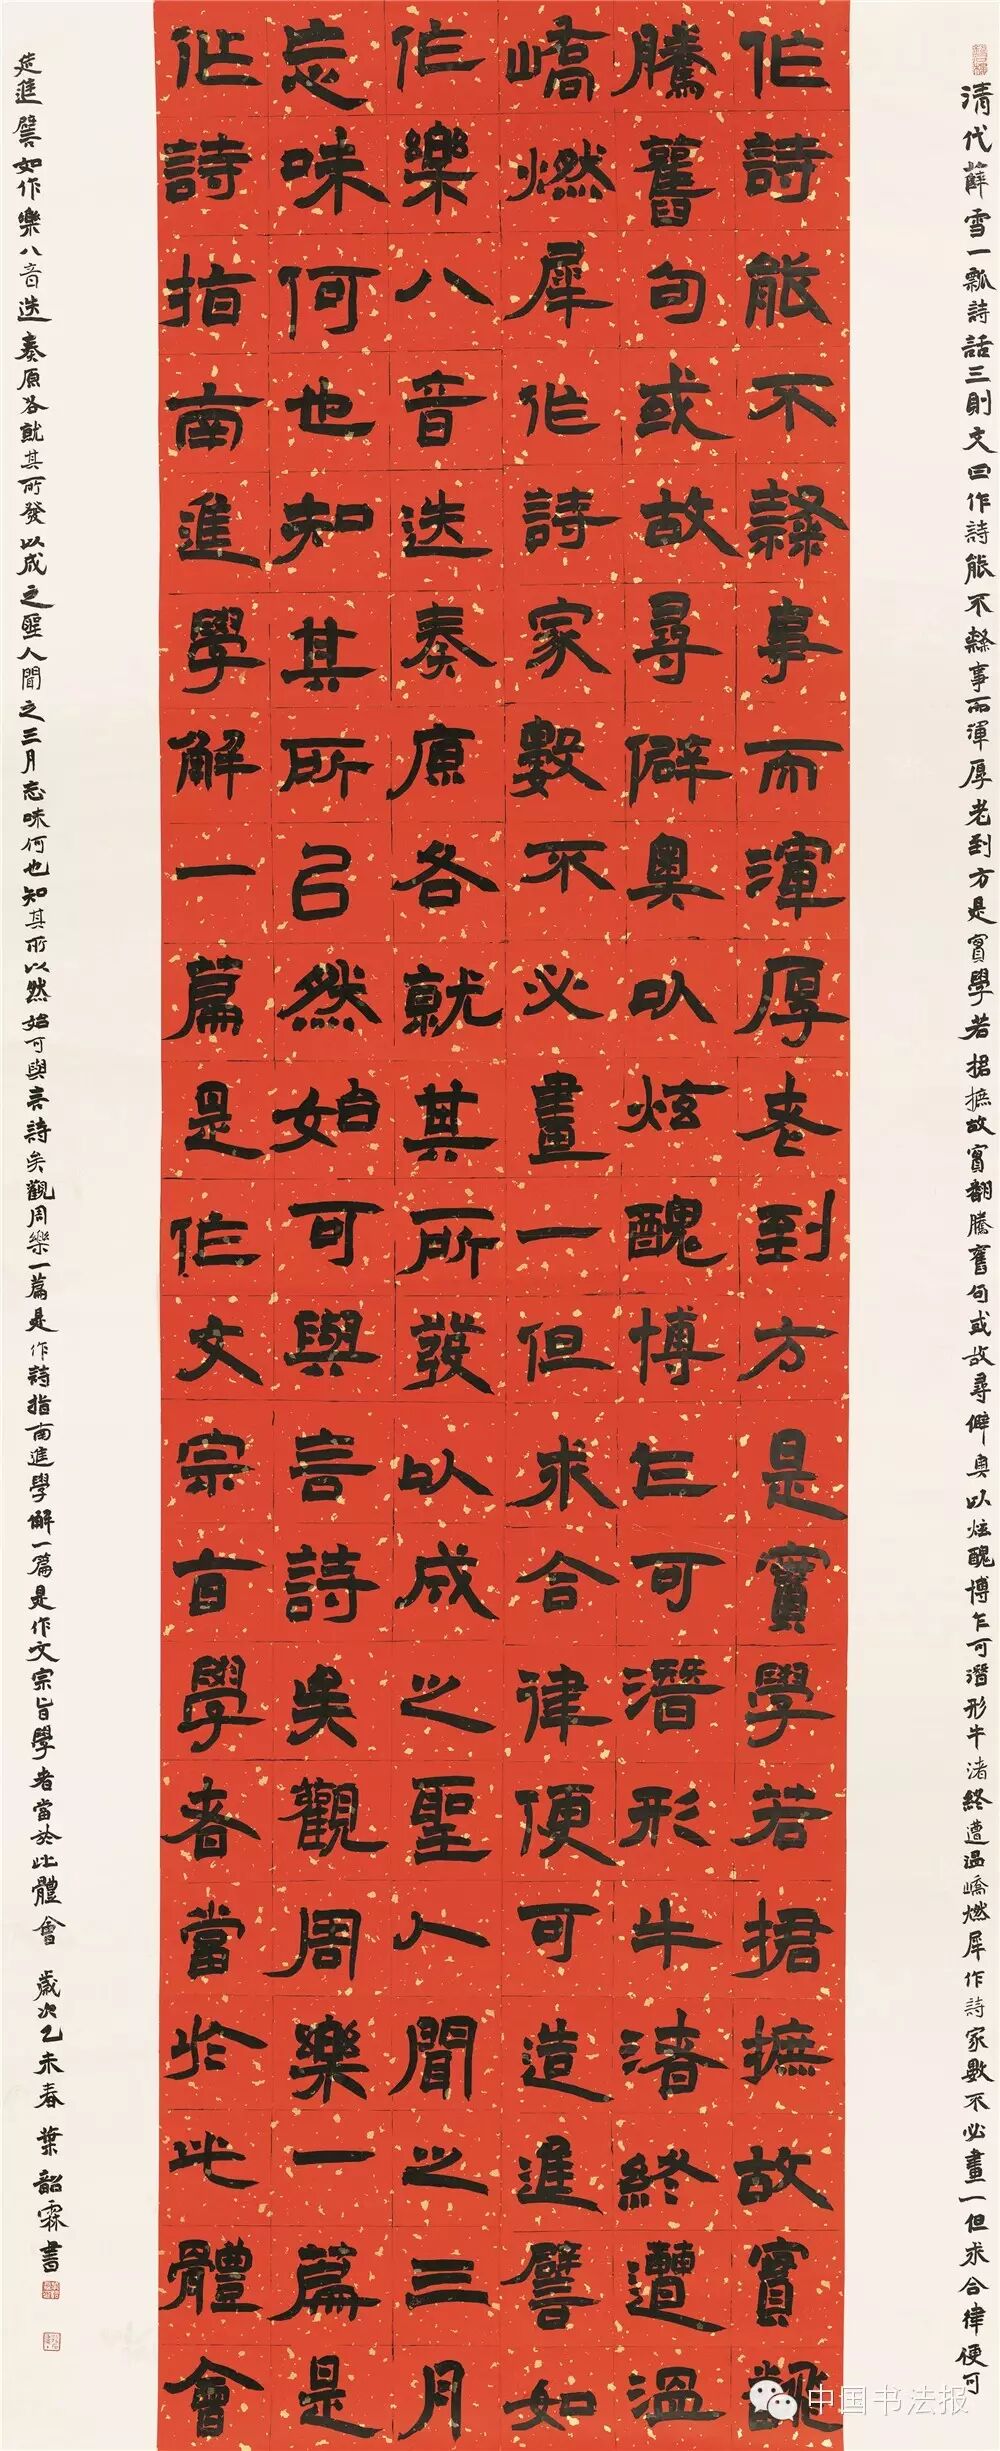 清代薛雪一瓢詩話三則文曰作詩能不隸事而渾厚老到方是實學若捃摭故實翻騰舊句或故尋僻奧以炫醜博乍可潛形牛渚終遭温嶠燃犀作詩家數不必畫一但求合律便可
作詩能不隸事而渾厚老到方是實學若捃摭故實飜
騰舊句或故尋僻奧以炫醜博乍可潛形牛渚終遭溫
嶠燃犀作詩家數不必畫一但求合律便可造進譬如
作樂八音迭奏原各就其所發以成之聖人聞之三月
忘味何也知其所以然始可與言詩矣觀周樂一篇是
作詩指南進學解一篇是作文宗旨學者當於此體會
造進譬如作樂八音迭奏原各就其所發以成之聖人聞之三月忘味何也知其所以然始可與言詩矣觀周樂一篇是作詩指南進學解一篇是作文宗旨學者當於此體會 歲次乙未春 葉韶霖書
中国书法报